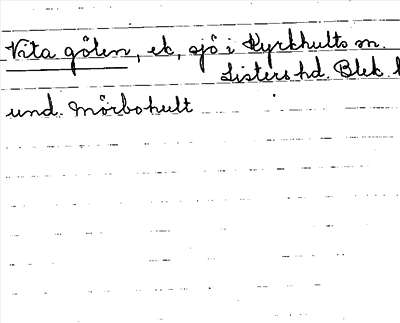 Vita gölen, ek, sjö i Kyrkhults sn.
Listers hd. Blek.
und. Mörbohult